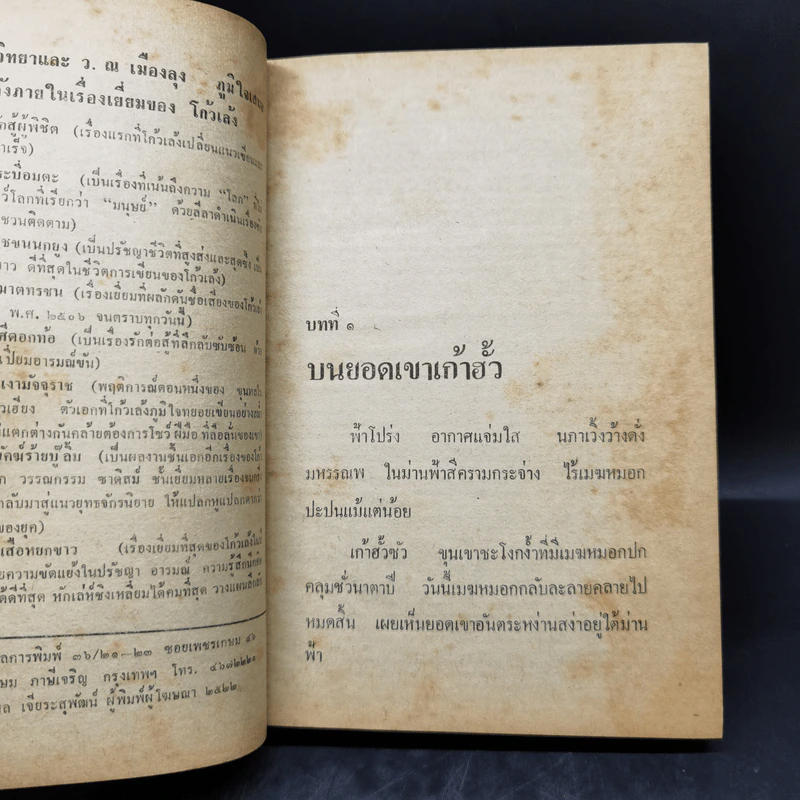 วิทยาและ ว. ณ เมืองลุง ภูมิใจเสนอ
ังภายในเรื่องเยี่ยมของ โก้วเล้ง
ักสู้ผู้พิชิต (เรื่องแรกที่โก้วเล้งเปลี่ยนแนวเขียน
าเร็จ)
ระบี่อมตะ (เป็นเรื่องที่เน้นถึงความ “โลภ”
ว์โลกที่เรียกว่า “มนุษย์” ด้วยลีลาดำเนินเรื่อง
ชวนติดตาม)
ชขนนกยูง (เป็นปรัชญาชีวิตที่สูงส่งและสุดซึ้ง
าว ดีที่สุดในชีวิตการเขียนของโก้วเล้ง)
ฆาตทรชน (เรื่องเยี่ยมที่ผลักดันชื่อเสียงของโก้วเล้ง
พ.ศ. ๒๕๐๖ จนตราบทุกวันนี้)
ศีดอกท้อ (เป็นเรื่องรักต่อสู้ที่ลึกลับซับซ้อน
เปี่ยมอารมณ์ขัน)
เงามัจจุราช (พฤติการณ์ตอนหนึ่งของ
วเฮียง ตัวเอกที่โก้วเล้งภูมิใจทยอยเขียนอย่าง
แตกต่างกันคล้ายต้องการโชว์ ฝีมือ ที่ลือลั่นของเขา
คฆ์ร้ายบู๊ลิ้ม (เป็นผลงานชั้นเอกอีกเรื่องของ
ก วรรณกรรม ซาดิสม์ ชั้นเยี่ยมหลายเรื่อง
กลับมาสู่แนวยุทธจักรนิยาย ให้แปลกหูแปลกตา
ของยุค)
เสือหยกขาว (เรื่องเยี่ยมที่สุดของโก้วเล้ง
ยความขัดแย้งในปรัชญา อารมณ์ ความรู้สึก
ได้ดีที่สุด หักเล่ห์ชิงเหลี่ยมได้คมที่สุด วางแผนลึกลับ
ลการพิมพ์ ๓๖/๒๑—๒๓ ซอยเพชรเกษม ๔๖
ษม ภาษีเจริญ กรุงเทพฯ โทร. ๔๖๘๒๒๒๑
ล เจียระสุพัฒน์ ผู้พิมพ์ผู้โฆษณา ๒๕๒๒
บทที่ ๑
บนยอดเขาเก้าฮั้ว
ฟ้าโปร่ง อากาศแจ่มใส นภาเวิ้งว้างดั่ง
มหรรณพ ในม่านฟ้าสีครามกระจ่าง ไร้เมฆหมอก
ปะปนแม้แต่น้อย
เก้าฮั้วซัว ขุนเขาชะโงกง้ำที่มีเมฆหมอกปก
คลุมชั่วนาตาปี วันนี้เมฆหมอกกลับละลายคลายไป
หมดสิ้น เผยเห็นยอดเขาอันตระหง่านสง่าอยู่ใต้ม่าน
ฟ้า